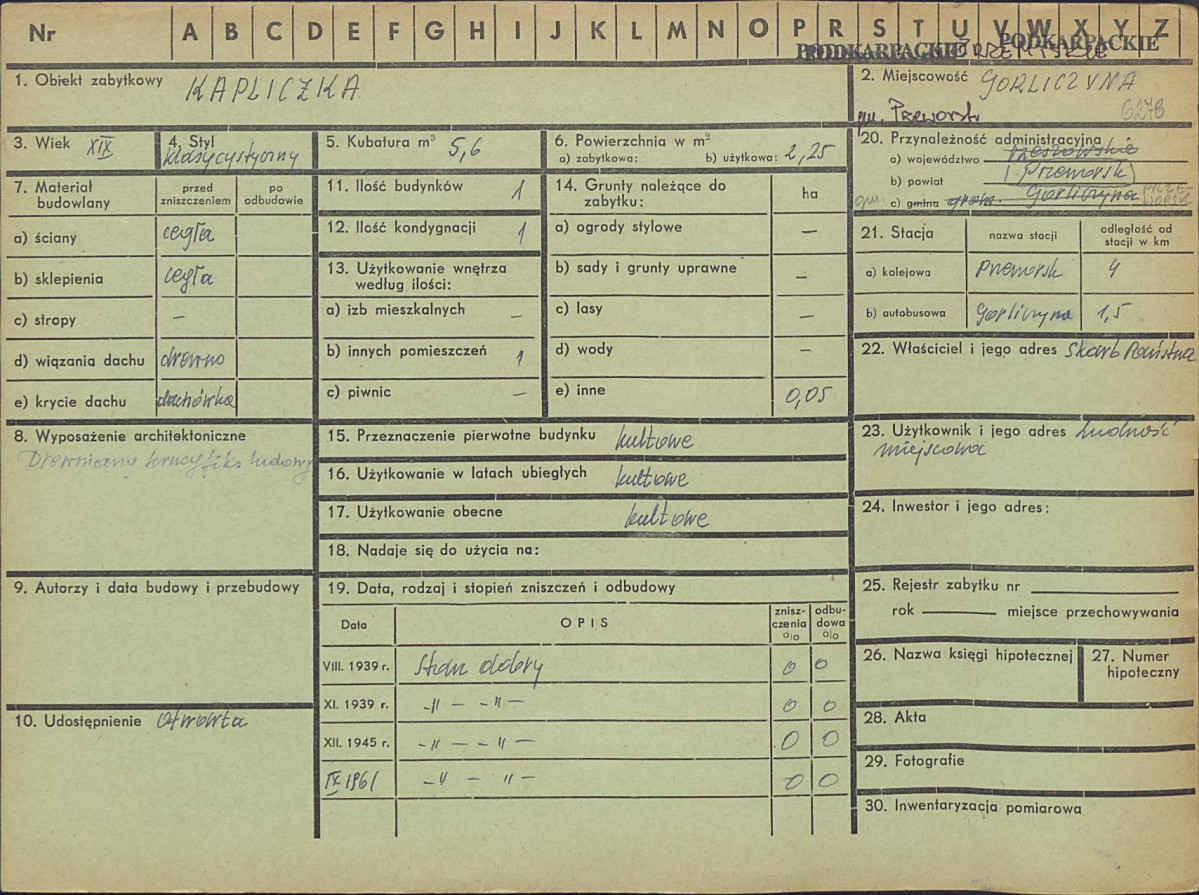 Nr A B C D E F G H I J K L M N O P R S T U V W X Y Z
PODKARPACKIE PODKARPACKIE
1. Obiekt zabytkowy KAPLICZKA
2. Miejscowość GORLICZYNA
gm. Przeworsk 6278
3. Wiek XIX
4. Styl klasycystyczny
5. Kubatura m³ 5,6
6. Powierzchnia w m²
a) zabytkowa: b) użytkowa: 2,25
20. Przynależność administracyjna
a) województwo rzeszowskie
b) powiat Przeworsk
gm. c) gmina grom. Gorliczyna PRZE-
WORSK
7. Materiał budowlany
przed zniszczeniem
po odbudowie
a) ściany cegła
b) sklepienia cegła
c) stropy –
d) wiązania dachu drewno
e) krycie dachu dachówka
11. Ilość budynków 1
12. Ilość kondygnacji 1
13. Użytkowanie wnętrza
według ilości:
a) izb mieszkalnych –
b) innych pomieszczeń 1
c) piwnic –
14. Grunty należące do
zabytku: ha
a) ogrody stylowe –
b) sady i grunty uprawne –
c) lasy –
d) wody –
e) inne 0,05
21. Stacja
nazwa stacji
odległość od
stacji w km
a) kolejowa Przeworsk 4
b) autobusowa Gorliczyna 1,5
22. Właściciel i jego adres Skarb Państwa
8. Wyposażenie architektoniczne
Drewniany krucyfiks ludowy
15. Przeznaczenie pierwotne budynku kultowe
16. Użytkowanie w latach ubiegłych kultowe
17. Użytkowanie obecne kultowe
18. Nadaje się do użycia na:
23. Użytkownik i jego adres Ludność
miejscowa
24. Inwestor i jego adres:
9. Autorzy i data budowy i przebudowy
10. Udostępnienie Otwarta
19. Data, rodzaj i stopień zniszczeń i odbudowy
Data OPIS
znisz-
czenia
%
odbu-
dowa
%
VIII. 1939 r. Stan dobry 0 0
XI. 1939 r. -"- -"- 0 0
XII. 1945 r. -"- -"- 0 0
IX 1961 -"- "- 0 0
25. Rejestr zabytku nr
rok miejsce przechowywania
26. Nazwa księgi hipotecznej
27. Numer
hipoteczny
28. Akta
29. Fotografie
30. Inwentaryzacja pomiarowa